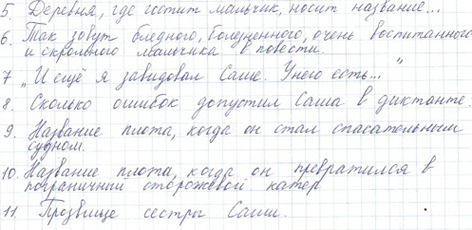 5. Деревня, где гостит мальчик, носит название...
6. Так зовут бледного, болезненного, очень воспитанного
и скромного мальчика в повести.
7 „И ещё я завидовал Саше. У него есть..."
8. Сколько ошибок допустил Саша в диктанте.
9. Название плота, когда он стал спасательным
судном.
10. Название плота, когда он превратился в
пограничный сторожевой катер
11. Прозвище сестры Саши.